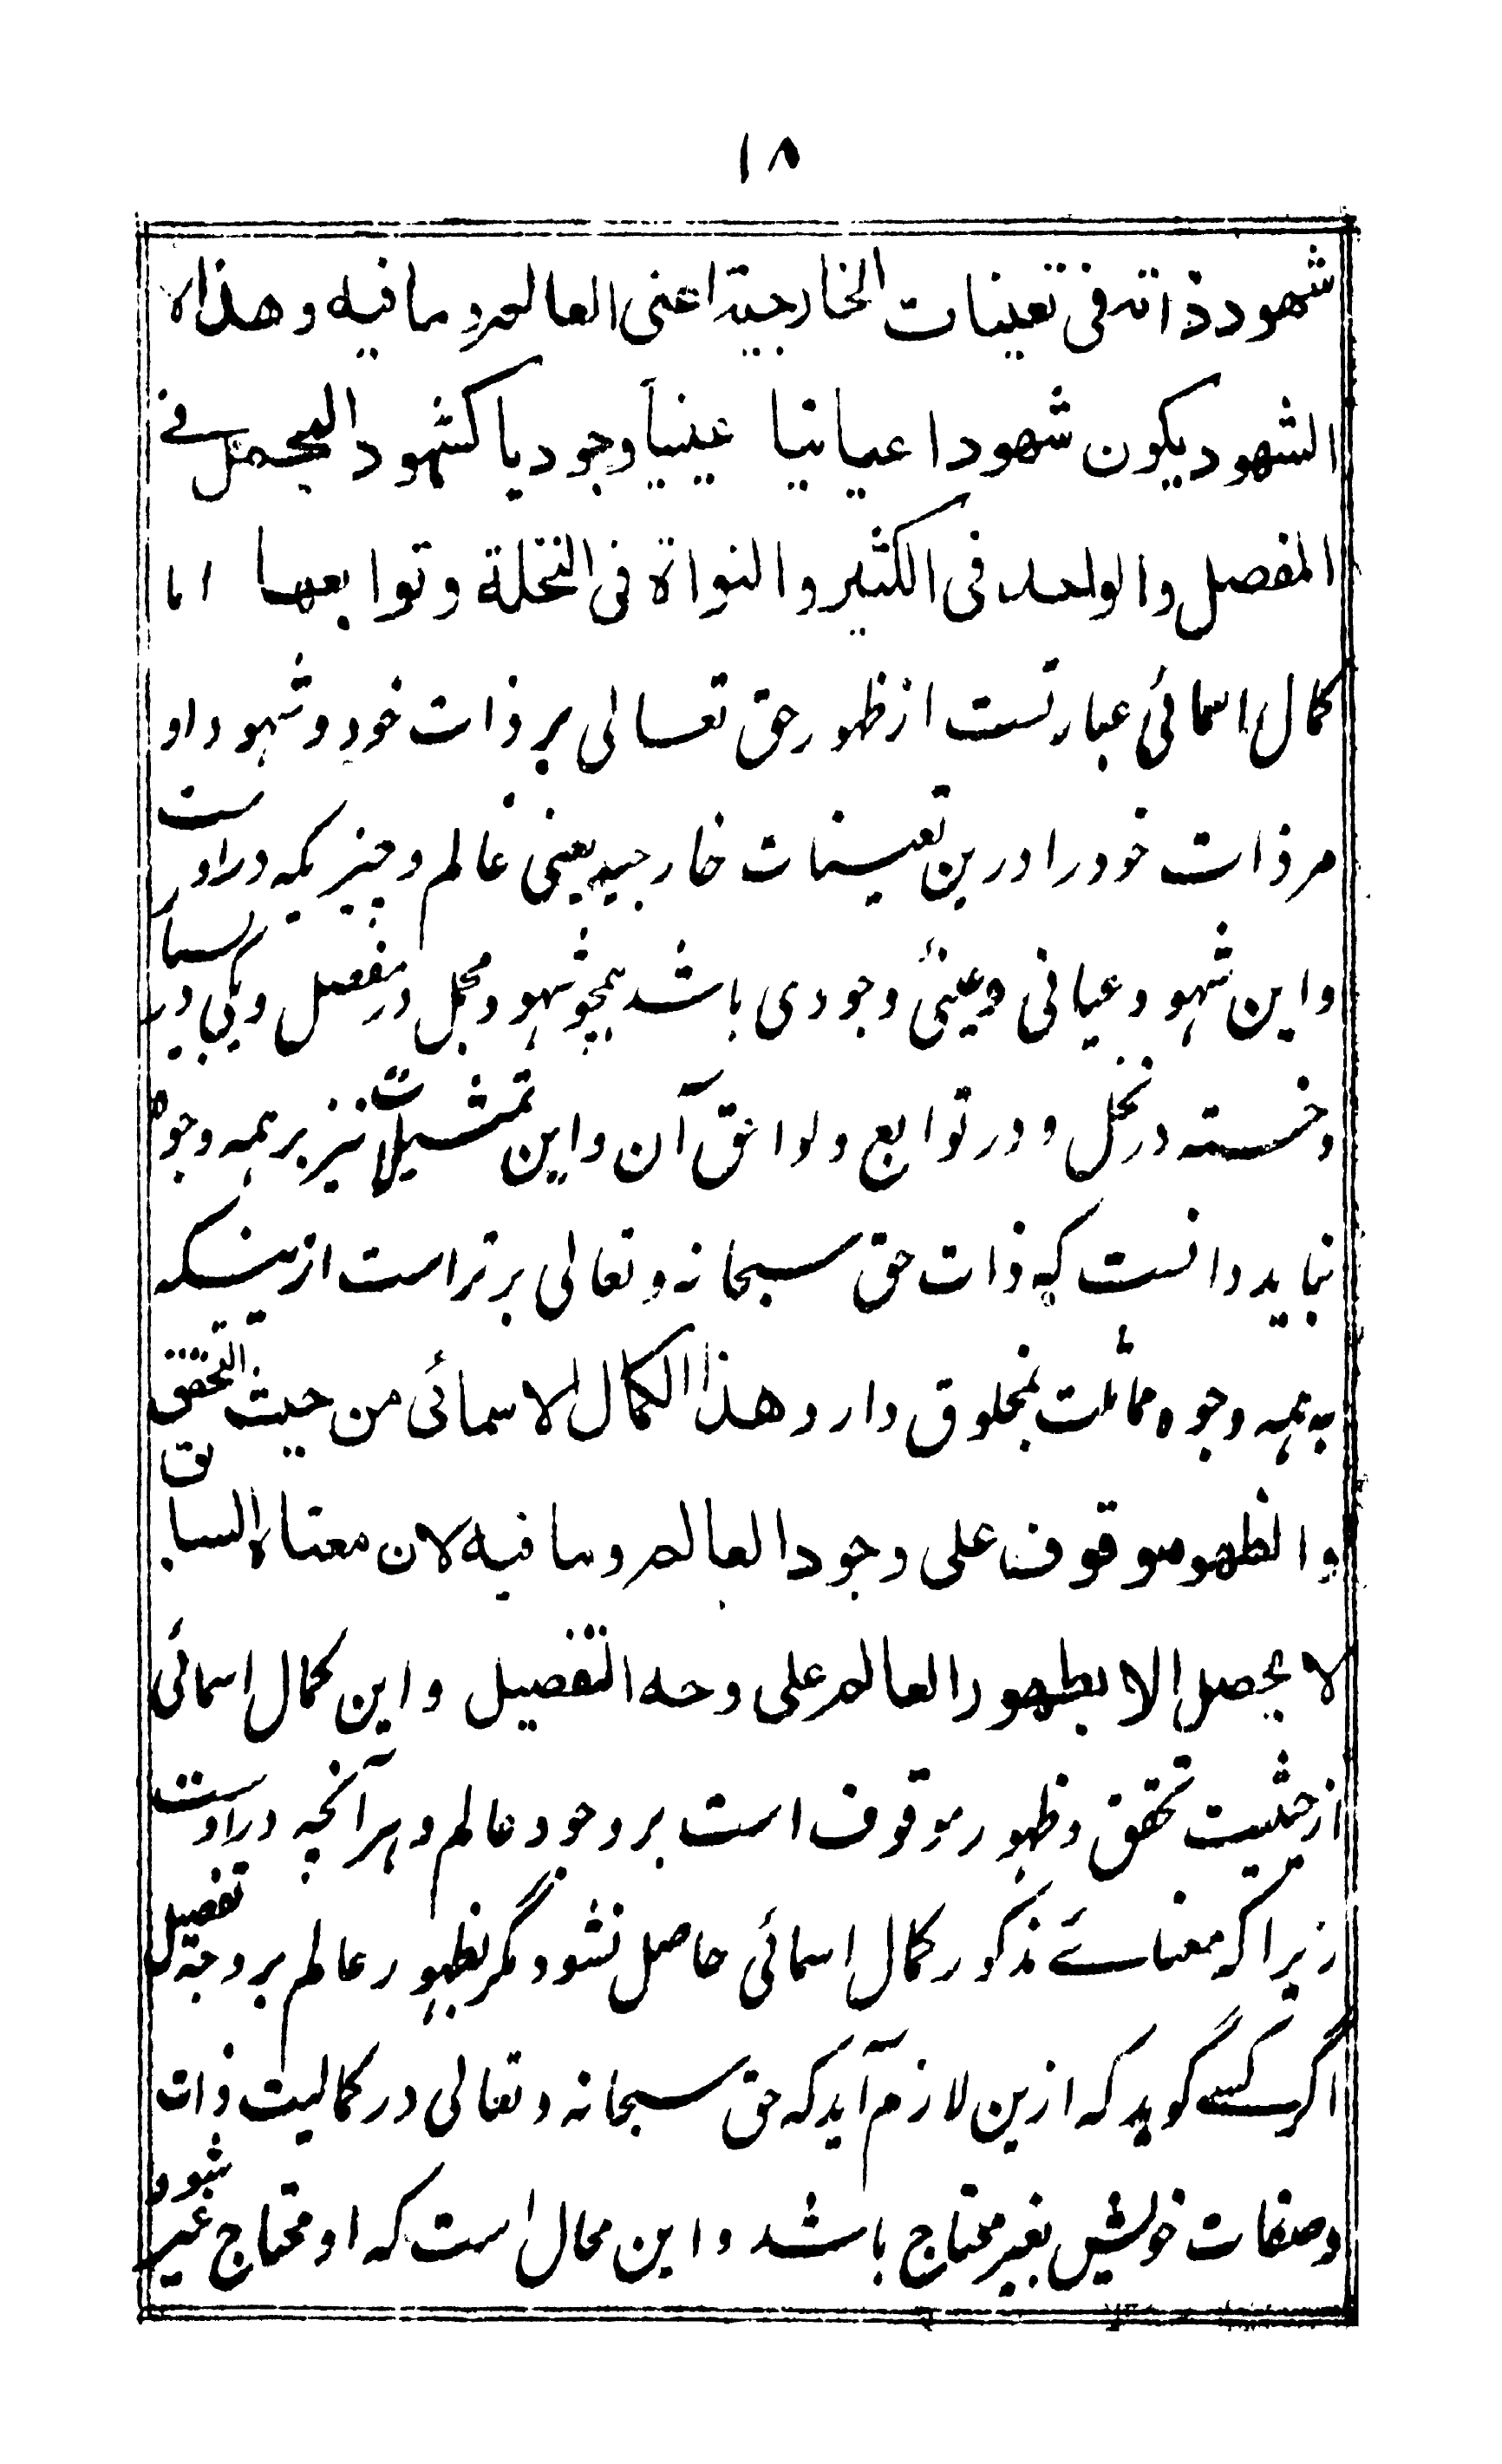 ۱۸
شهود ذاته فی تعینات الخارجیة اعنی العالم وما فیه وهذا
الشهود یکون شهودا عیانیا عینیاً وجودیا کشهود المجمل فی
المفصل والواحد فی الکثیر والنواة فی النخلة وتوابعها اما
کمال اسمائی عبارتست از ظهور حق تعالی بر ذات خود و شهود او
مر ذات خود را درین تعینات خارجیه یعنی عالم و چیزیکه در اوست
و این شهود عیانی و عینی وجودی باشد همچو شهود مجمل در مفصل و یکی در بسیار
و خسته در نخل و در توابع و لواحق آن و این تمثیلات نیز بر همه وجوه
نباید دانست که ذات حق سبحانه و تعالی برتر است ازینکه
به همه وجوه مماثلت بمخلوق دارد هذا الکمال الاسمائی من حیث التحقق
والظهو موقوف علی وجود العالم وما فیه لان معناه السابق
لا یحصل الا بظهور العالم علی وجه التفصیل و این کمال اسمائی
از حیثیت تحقق و ظهور موقوف است بر وجود عالم و هر آنچه در اوست
زیرا که معنائے مذکور کمال اسمائی حاصل نشود مگر بظهور عالم بر وجه تفصیل
اگر کسے گوید که ازین لازم آید که حق سبحانه و تعالی در کمالیت ذات
و صفات خویش بغیر محتاج باشد و این محال است که او محتاج غیر شود